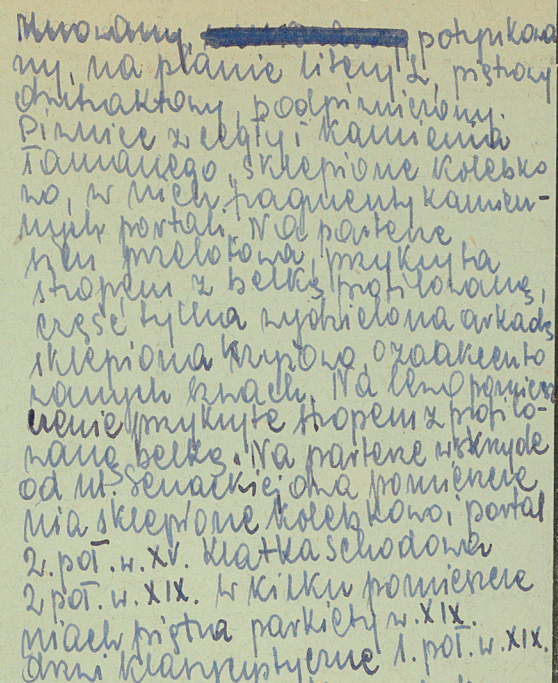 Murowany, potynkowa
ny, na planie litery L, piętrowy
dwutraktowy, podpiwniczony.
Piwnice z cegły i kamienia
łamanego, sklepione kolebko
wo, w nich fragmenty kamien-
nych portali. Na parterze
sień przelotowa, przykryta
stropem z belką profilowaną,
część tylna wydzielona arkadą
sklepiona krzyżowo, o zaakcento
wanych żebrach. Na lewo pomiesz
czenie przykryte stropem z profilo-
waną belką. Na parterze w skrzydle
od ul. Senackiej dwa pomieszcze
nia sklepione kolebkowo, portal
2. poł. w. XV. Klatka schodowa
2 poł. w. XIX. W kilku pomieszcze
niach piętra parkiety w. XIX.
drzwi klasycystyczne 1. poł. w. XIX.